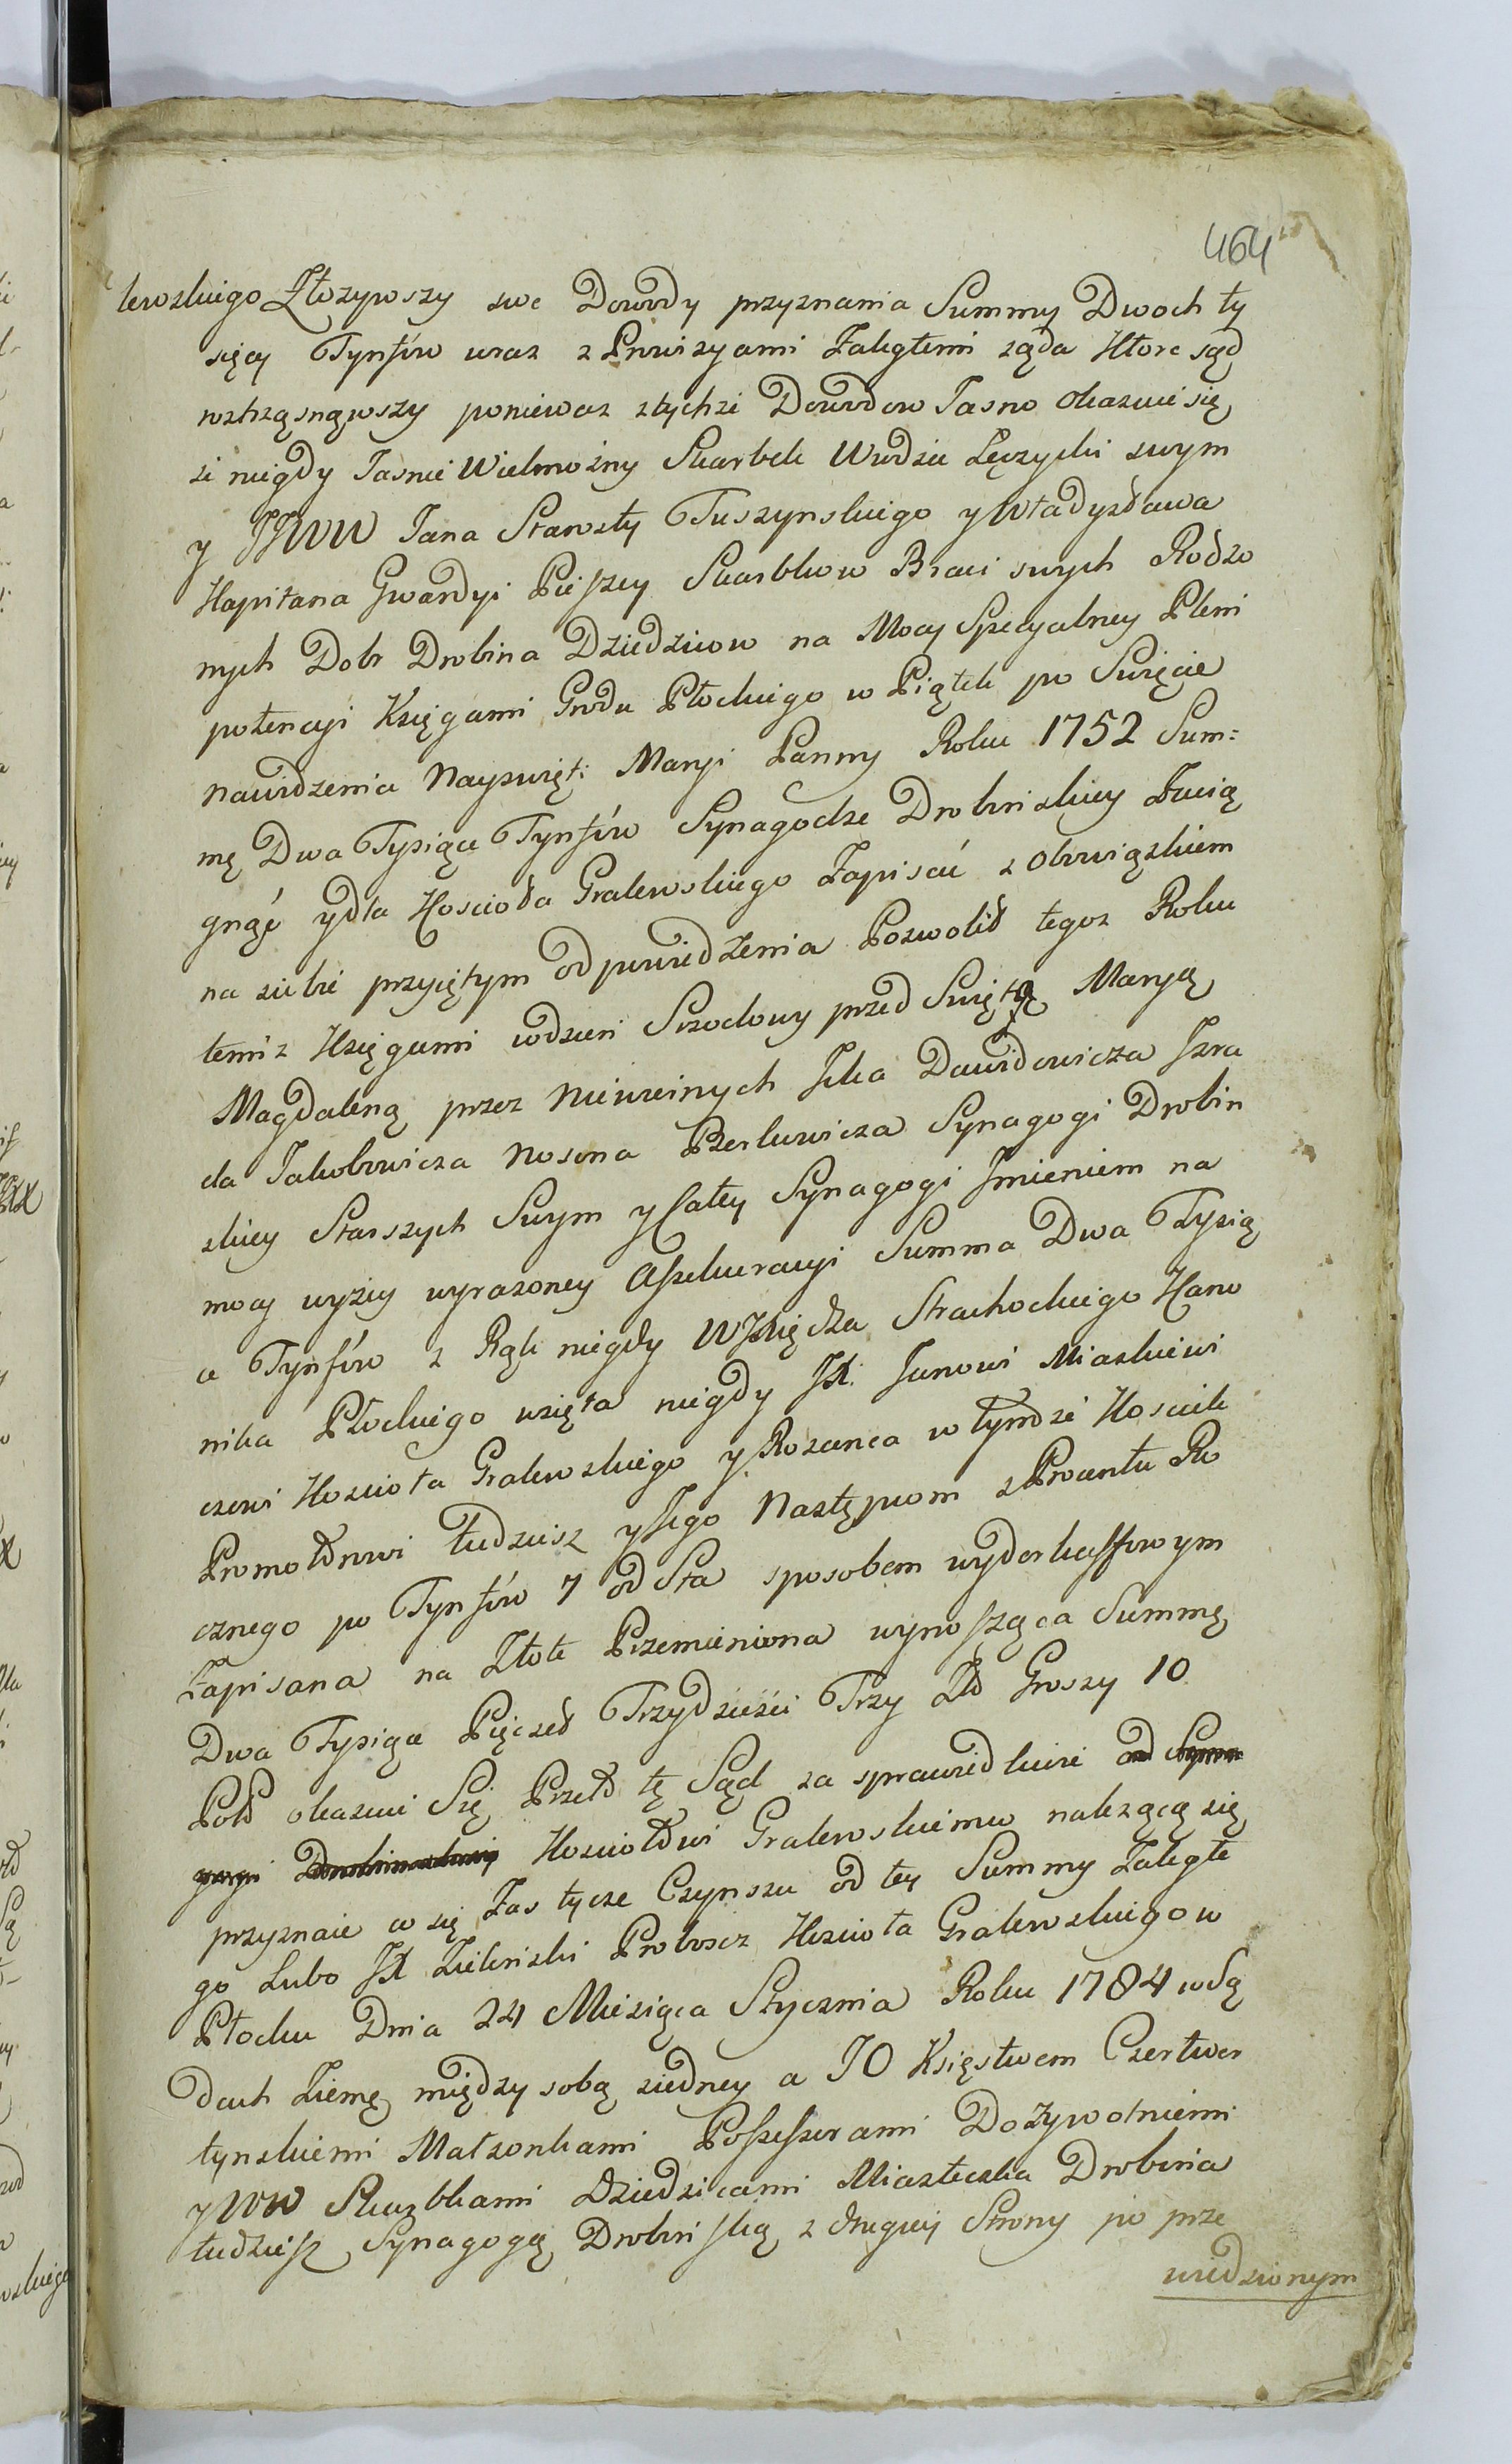 464
lewskiego Złozywszy swe Dowody przyznania Summy Dwoch ty
sięcy Tynfów wraz z Prowizyami Zaległemi ząda Które sąd
roztrząsnąwszy poniewaz ztychze Dowodow Jasno okazuie się
ze niegdy Jasnie Wielmozny Skarbek Wwdzic Łęczycki swym
y JJWW Jana Starosty Tuszynskiego y Władysława
Kapitana Gwardyi Pieszey Skarbkow Braci swych Rodzo
nych Dobr Drobina Dziedzicow na Mocy Specyalney Pleni
potencyi Księgami Grodu Płockiego w Piątek po Swięcie
Nawidzenia Nayswięt: Maryi Panny Roku 1752 Sum=
mę Dwa Tysiące Tynfów Synagodze Drobinskiey Zacią
gnąć ydla Kościoła Gralewskiego Zapisać z obowiązkiem
na siebie przyiętym odpowiedzenia Pozwolił tegoz Roku
temiz Księgami wdzien Srzodowy przed Swiętą Maryą
Magdaleną przez Niewiernych Jcka Dawidowicza Jzra
ela Jakobowicza Nosona Berkowicza Synagogi Drobin
skiey Starszych Swym y Całey Synagogi Jmieniem na
mocy wyzey wyrazoney Assekuracyi Summa Dwa Tysią
ce Tynfów z Rąk niegdy WJXiędza Strachockiego Kano
nika Płockiego wzięta niegdy JX. Janowi Miaskiewi
czowi Kosciola Gralewskiego y Rozanca w tymdze Kosciele
Promotorowi tudziesz y Jego Następcom z Procentu Ro
cznego po Tynfów 7 od Sta sposobem wyderkaffowym
Zapisana na Złote Przemieniona wynosząca Summę
Dwa Tysiące Pięcset Trzydzieści Trzy Zł Groszy 10
Pols okazuie Się Przeto tę Sąd za sprawiedliwie od Syna
gogi Drobinskiey Kosciołowi Gralewskiemu nalezącą się
przyznaie co się Zas tycze Czynszu od tey Summy Zaległe
go Lubo JX Zielinski Proboscz Kosciola Gralewskiego w
Płocku Dnia 24 Miesiąca Stycznia Roku 1784 w Są
dach Ziems między sobą ziedney a JO Księstwem Czertwer
tynskiemi Małzonkami Possessorami Dozywotniemi
y WW Skarbkami Dziedzicami Miasteczka Drobina
tudziesz Synagogą Drobinską z drugiey Strony po prze
wiedzionym